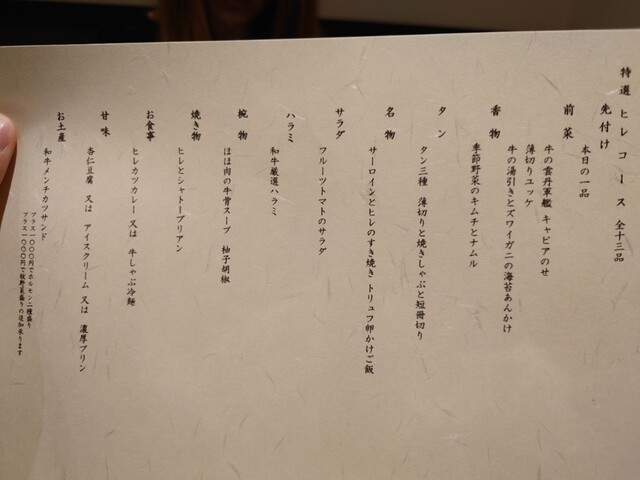 特選 ヒレコース 全十三品
先付け
本日の一品
前菜
牛の雲丹軍艦 キャビアのせ
薄切りユッケ
牛の湯引きとズワイガニの海苔あんかけ
香物
季節野菜のキムチとナムル
タン
タン三種 薄切りと焼きしゃぶと短冊切り
名物
サーロインとヒレのすき焼き トリュフ卵かけご飯
サラダ
フルーツトマトのサラダ
ハラミ
和牛厳選ハラミ
椀物
ほほ肉の牛骨スープ 柚子胡椒
焼き物
ヒレとシャトーブリアン
お食事
ヒレカツカレー 又は 牛しゃぶ冷麺
甘味
杏仁豆腐 又は アイスクリーム 又は 濃厚プリン
お土産
和牛メンチカツサンド
プラス一〇〇〇円でホルモン二種盛り
プラス一〇〇〇円で板野菜盛りの追加承ります